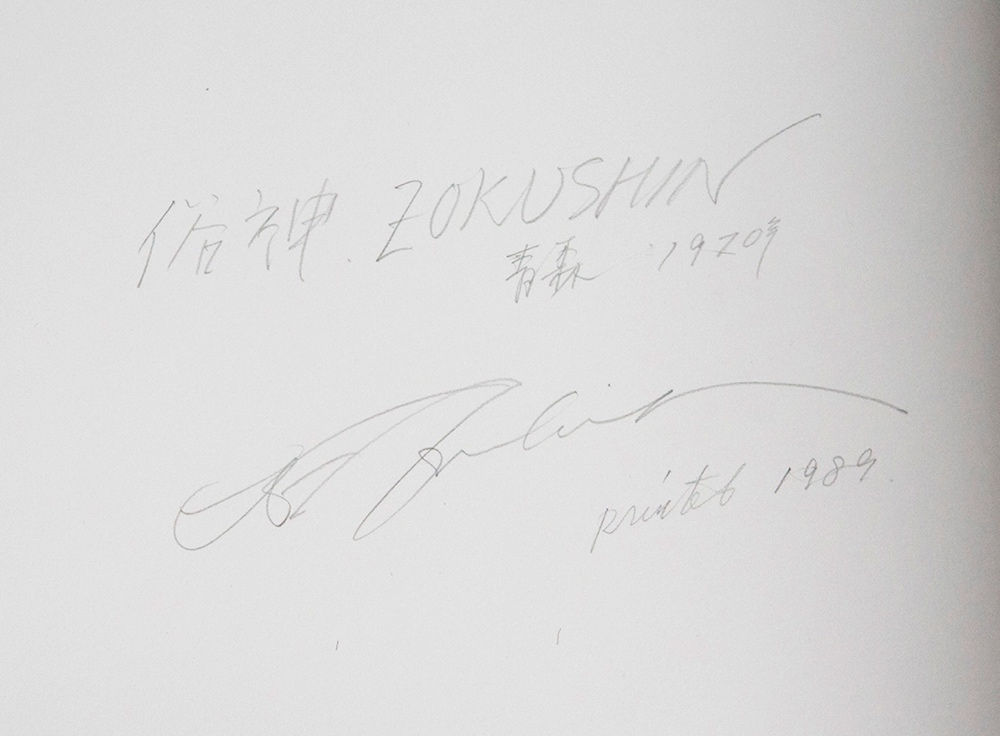 俗神. ZOKUSHIN
青森 1970年
printed 1989.